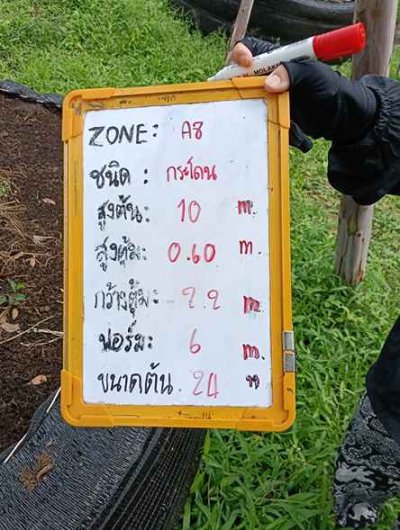 ZONE: A8
ชนิด : กระโดน
สูงต้น: 10 m.
สูงตุ้ม: 0.60 m.
กว้างตุ้ม: 2.2 m
ฟอร์ม: 6 m.
ขนาดต้น 24 "